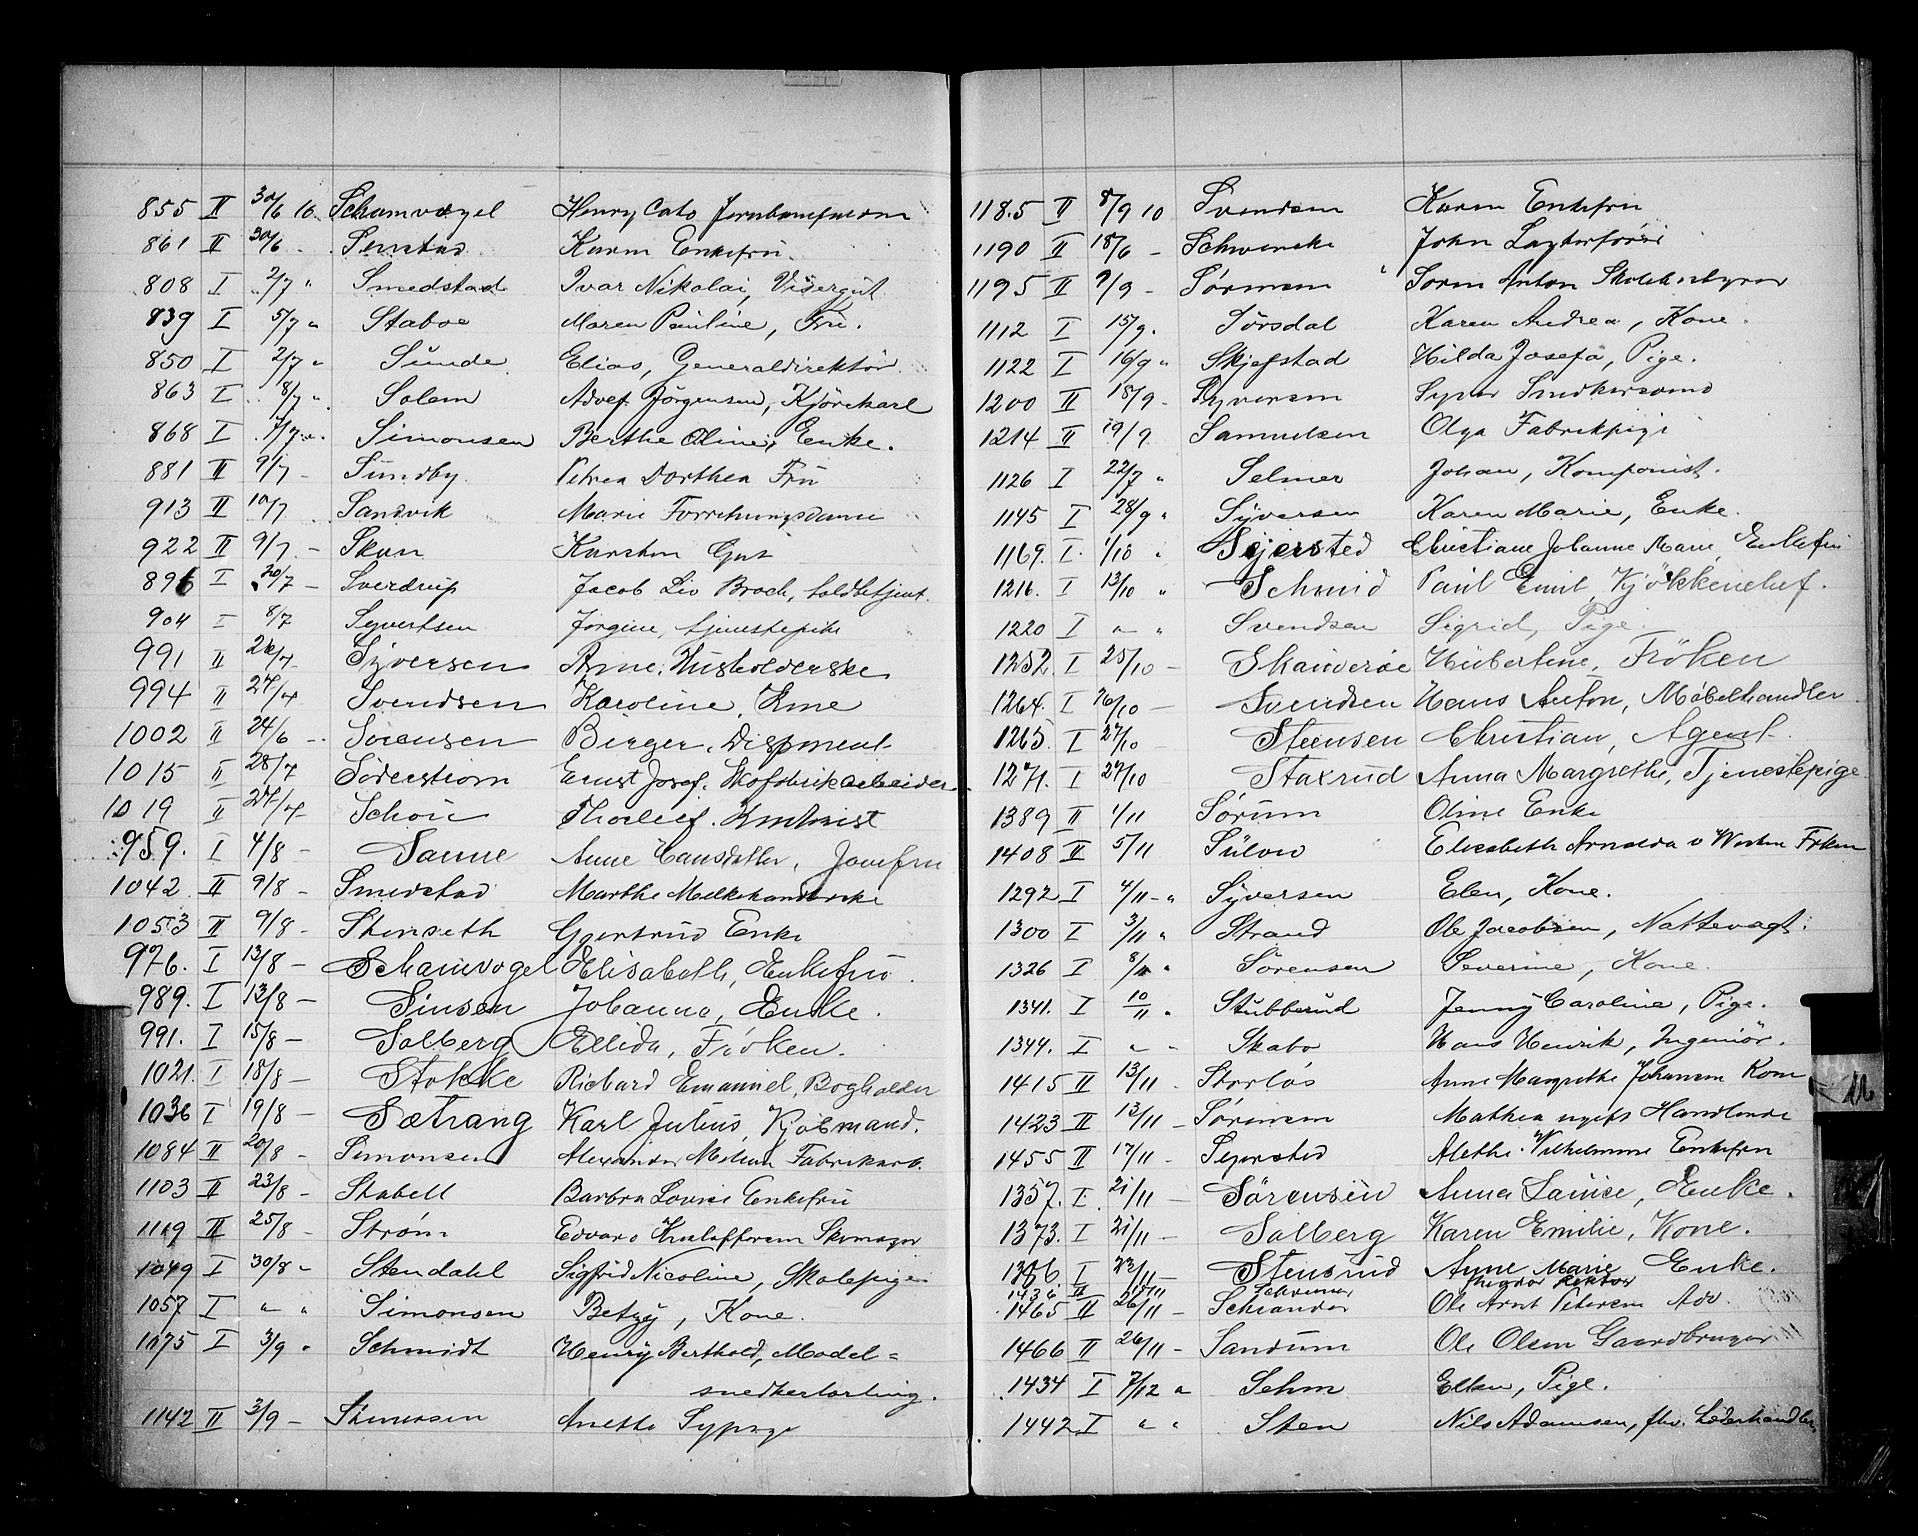 855 II 30/6 10 Schamvogel Henry Cato
861 II 30/6 - Karen Enkefru.
808 I 2/7 " Smedstad Ivar Nikolai, Visergut
839 I 5/7 " Staboe Maren Pauline, Fru.
850 I 2/7 " Sunde Elias, Generaldirektör
863 I 8/7 " Solem Adolf Jörgensen, Kjörekarl
868 I 7/7 " Simonsen Berthe Oline, Enke.
881 II 9/7 - Sundby Petrea Dorthea Fru
913 II 10/7 Sandvik Marie Forretningsdame
922 II 9/7 - Karsten Gut
896 I 20/7 - Sverdrup Jacob Liv Broch, toldbetjent.
904 I 8/7 Syvertsen Jörgine, tjenestepike
991 II 26/7 Syversen Anne, Husholderske
994 II 27/7 Svendsen Karoline,
1002 II 24/6 - Sörensen Birger, Disponent
1015 II 28/7 Söderström Ernst Josef, Skofabrikarbeider
1019 II 27/7 Schou Thorleif.
959. I 4/8 - Sanne Anne Hansdatter, Jomfru
1042 II 9/8 - Smedstad Marthe Melkehandlerske
1053 II 9/8 - Stenseth Gjertrud Enke
976. I 13/8 - Schamvogel Elisabeth, Enkefru.
989. I 13/8 - Sinsen Johanne, Enke.
991. I 15/8 - Solberg Ellida, Fröken.
1021 I 18/8 - Stokke Richard Emanuel, Bogholder
1036 I 19/8 - Sætrang Karl Julius, Kjöbmand.
1084 II 20/8 - Simonsen Alexander Fabrikarb.
1103 II 23/8 - Stabell Barbra Lovise Enkefru
1119 II 25/8 - Strøm Edvard Skomager
1049 I 30/8 " Stendahl Sigfrid Nicoline, Skolepige
1057 I " " Simonsen Betzy, Kone.
1075 I 3/9 " Schmidt Henry Berthold, Model=
snedkerlærling.
1142 II 3/9 - Simensen Anette Sypige
1185 II 8/9 10 Svendsen Karen Enkefru
1190 II 18/6 - Schwenske John
1195 II 9/9 - Sørensen Soren Anton Skolebestyrer
1112 I 15/9 " Sörsdal Karen Andrea, Kone.
1122 I 16/9 " Skjefstad Hilda Josefa, Pige.
1200 II 18/9 - Syversen Syver Snedkersvend
1214 II 19/9 Samuelsen Olga Fabrikpige
1126 I 22/7 " Selmer Johan, Komponist.
1145 I 28/9 " Syversen Karen Marie, Enke.
1169. I. 1/10 " Sejersted Christiane Johanne Marie Enkefru
1216. I 13/10 " Schmid Paul Emil, Kjökkenchef.
1220 I " " Svendsen Sigrid, Pige.
1252. I 25/10 - Skanderöe Hubertine, Fröken
1264. I 26/10 - Svendsen Hans Anton, Möbelhandler
1265. I 27/10 Steensen Christian, Agent
1271. I 27/10 Staxrud Anna Margrethe, Tjenestepige
1389 II 1/11 Sørum Oline Enke
1408 II 5/11 Sülow Elisabeth Arnolda v Westen Frken
1292 I 4/11 - " Syversen Elen, Kone.
1300 I 3/11 " Strand Ole Jacobsen, Nattevagt.
1326 I 8/11 " Sörensen Severine, Kone.
1341. I 10/11 " Stubberud Jenny Caroline, Pige.
1344. I " " Skabo Hans Henrik, Ingeniör.
1415 II 13/11 - Storløs Anne Margrethe Johansen Kone
1423 II 13/11 - Sørensen Mathea ugift Handlende
1455 II 17/11 - Sejersted Alethe Vilhelmine Enkefru
1357. I. 21/11 - Sörensen Anna Louise, Enke.
1373. I 21/11 - Solberg Karen Emilie, Kone.
1386. I 23/11 - Stensrud Anne Marie Enke.
1436 II 15/11 Schreiner Theodor Rektor
1465 II 26/11 - Schiander Ole Arnt Petersen Adv.
1466 II 26/11 - Sandum Ole Olsen Gaardbruger
1434 I 7/12 " Sehm Ellen, Pige.
1442 I " " Sten Nils Adamsen, fhv. Læderhandler